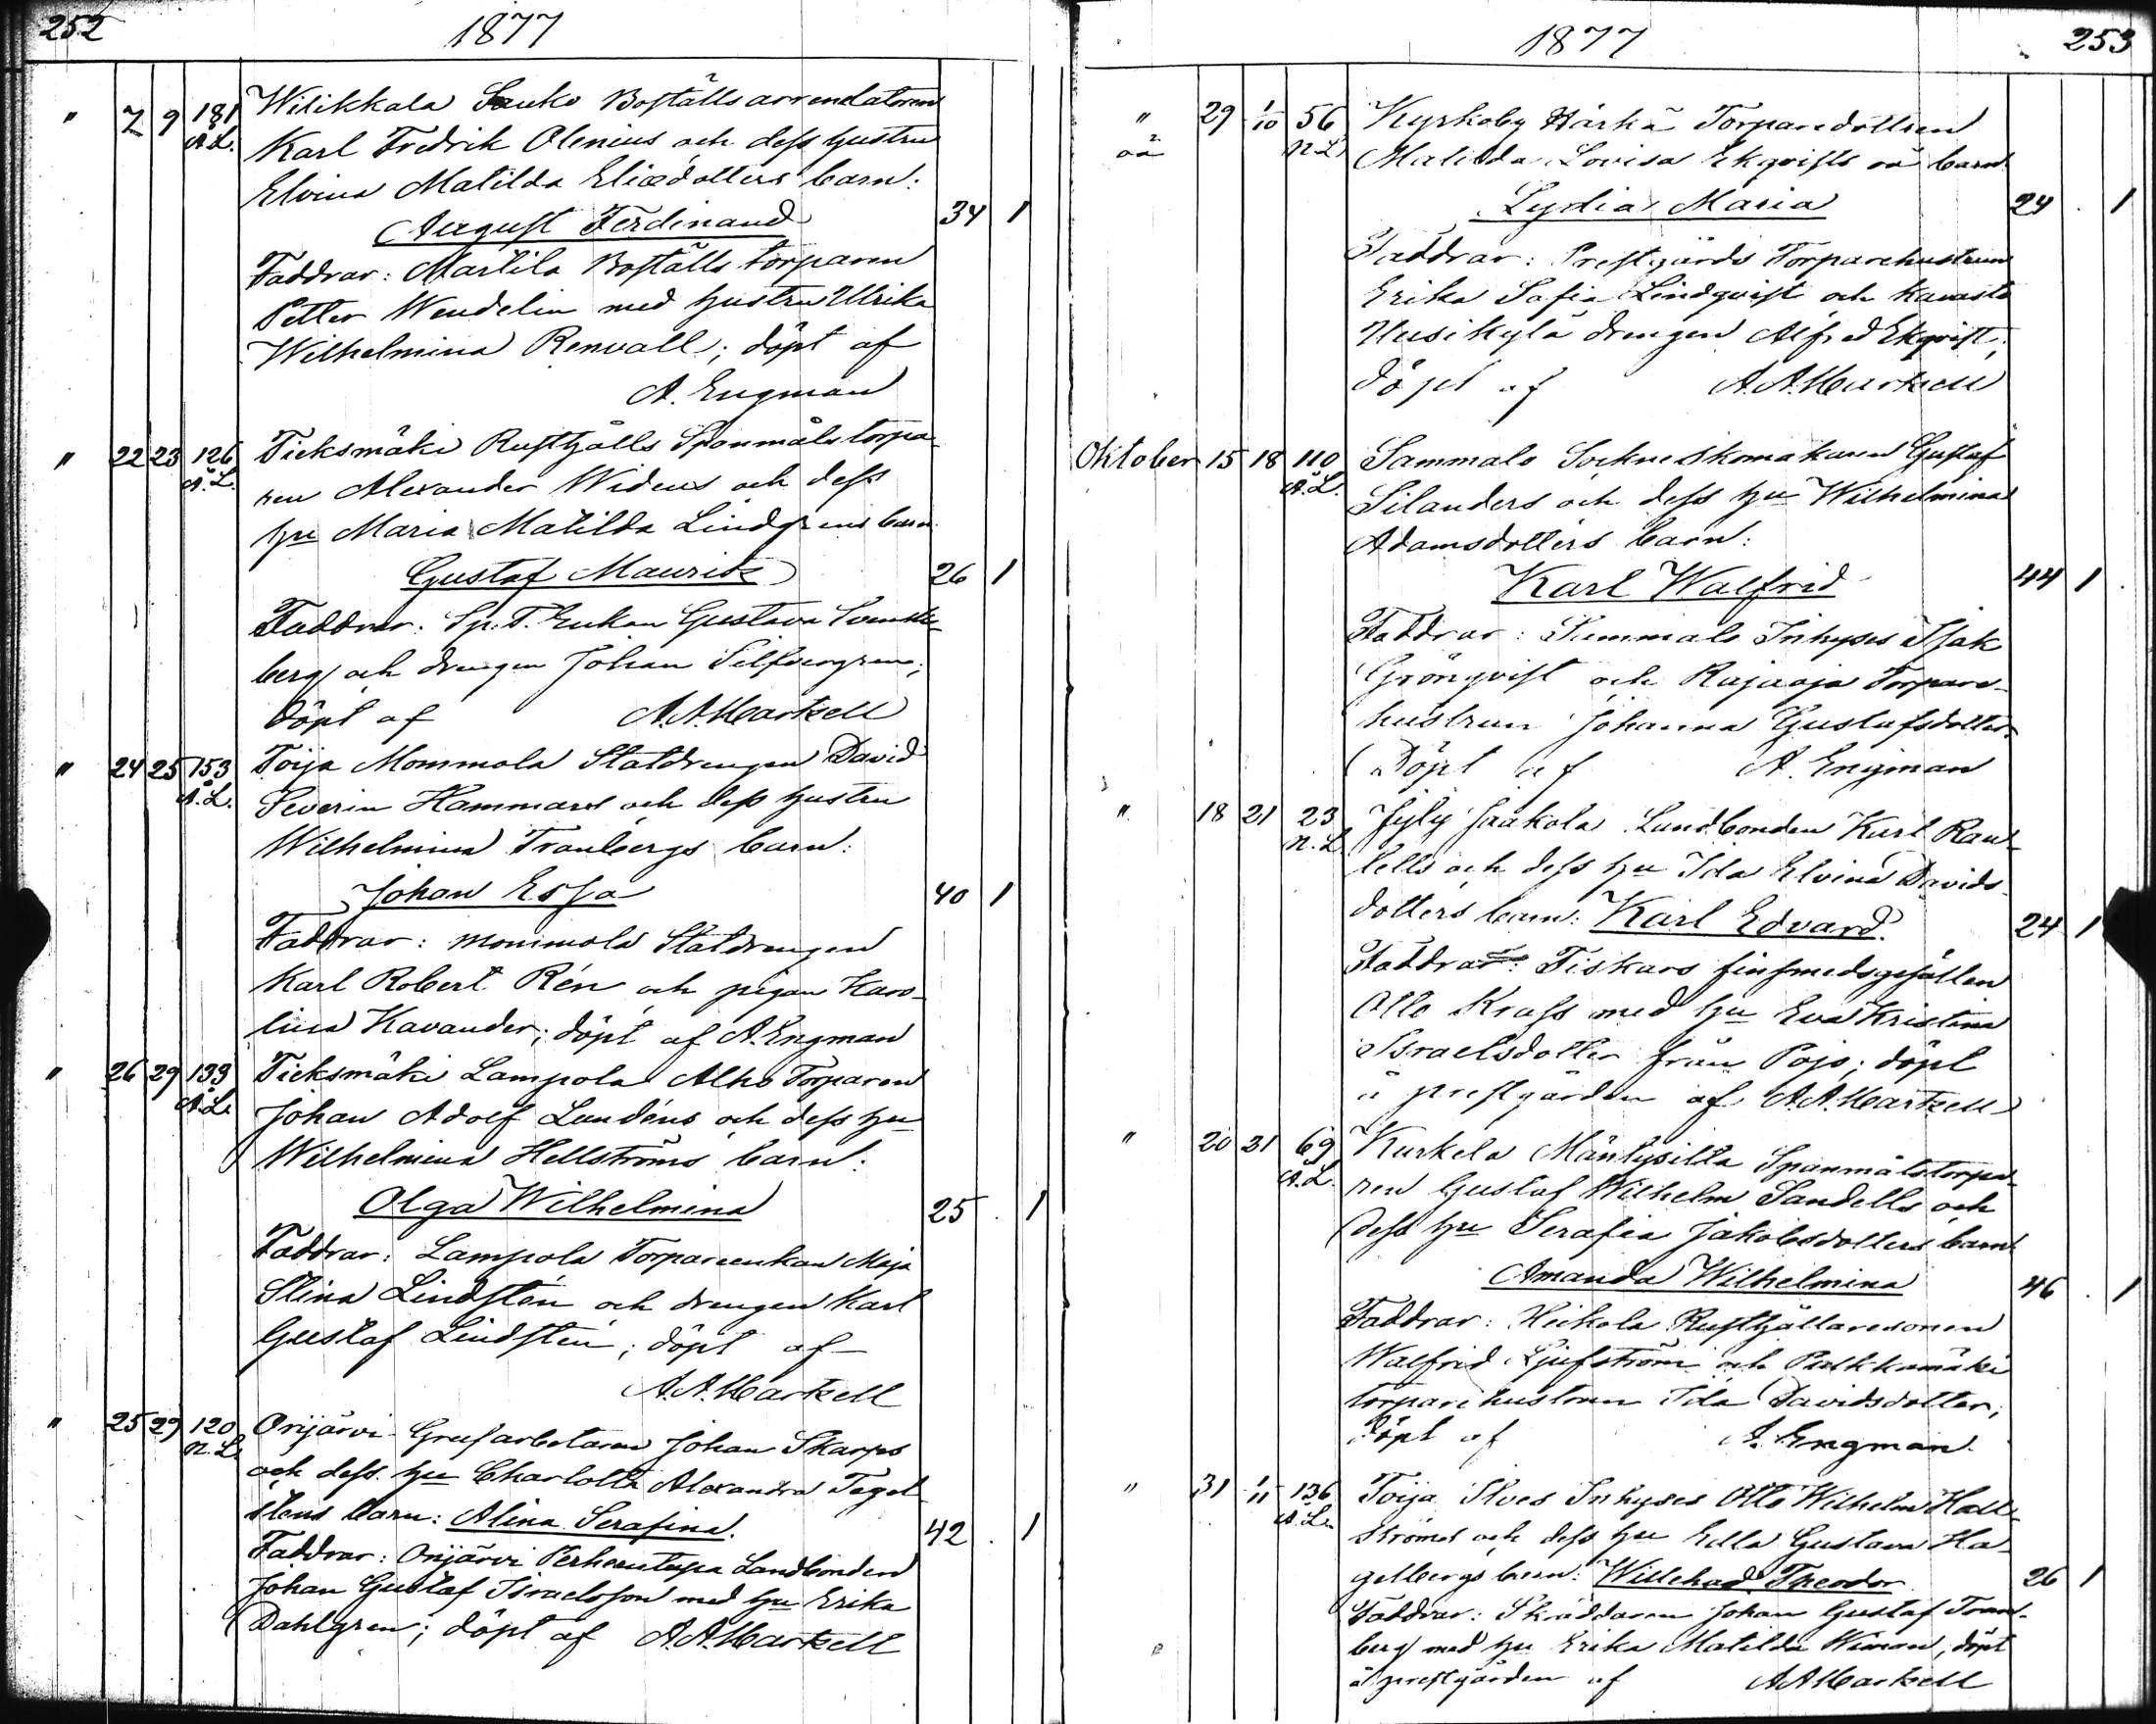 252
1877
" 7 9 181 Wiikkala Sauko Boställsarrendatoren
Å.L. Karl Fredrik Olenius och dess hustru
Elvina Matilda Eliædotters barn:
August Ferdinand 34 1
Faddrar: Martila Boställs torparen
Petter Wendelin med hustru Ulrika
Wilhelmina Renvall; döpt af
A. Engman
" 22 23 126 Ticksmäki Rusthålls Spanmåls torpa-
Å.L. ren Alexander Widens och dess
hu Maria Matilda Lindgrens barn
Gustaf Maurits 26 1
Faddrar: Sp.T. Enkan Gustava
berg och drengen Johan Silfvergren;
döpt af A.A. Markell
" 24 25 153 Toija Mommola Statdrengen David
Å.L. Severin Hammars och dess hustru
Wilhelmina Tranbergs barn:
Johan Esja 40 1
Faddrar: Mommola Statdrengen
Karl Robert Rén och pigan Karo-
lina Kavander; döpt af A. Engman
" 26 29 133 Ticksmäki Lampola Alho Torparen
Å.L. Johan Adolf Lundéns och dess hu
Wilhelmina Hellströms barn:
Olga Wilhelmina 25 1
Faddrar: Lampola Torpareenkan Maja
Stina Lindstén och drengen Karl
Gustaf Lindstén; döpt af
A.A. Markell
" 25 29 120 Orijärvi Grufarbetaren Johan Skarps
N.L. och dess hu Charlotta Alexandra Tegel-
stens barn: Alina Serafina. 42 1
Faddrar: Orijärvi Perheentupa Landbonden
Johan Gustaf Israelsson med hu Erika
Dahlgren; döpt af A.A. Markell
1877
253
" 29 1/10 56 Kyrkoby Härkä Torparedottren
oä N.L. Matilda Lovisa Ekqvists oä barn:
Lydia Maria 24 1
Faddrar: Prestgårds Torparehustrun
Erika Sofia Lindqvist och Kavasto
Uusikylä drengen Alfred Ekqvist;
döpt af A.A. Markell
Oktober 15 18 110 Sammalo Sockneskomakaren Gustaf
Å.L. Silanders och dess hu Wilhelmina
Adamsdotters barn:
Karl Walfrid 44 1
Faddrar: Sammalo Inhyses Isak
Grönqvist och Rajaoja Torpare-
hustrun Johanna Gustafsdotter.
Döpt af A. Engman
" 18 21 23 Jyly Jaakola Landbonden Karl Ran-
N.L. tells och dess hu Ida Elvina Davids-
dotters barn: Karl Edvard. 24 1
Faddrar: Fiskars finsmedsgesällen
Otto Krass med hu Eva Kristina
Israelsdotter från Pojo; döpt
å prestgården af A.A. Markell
" 20 21 69 Kurkela Mäntysilta Spanmålstorpa-
Å.L. ren Gustaf Wilhelm Sandells och
dess hu Serafia Jakobsdotters barn
Amanda Wilhelmina 46 1
Faddrar: Heikola Rusthållaresonen
Walfrid Ljufström och Pulkkamäki
torparehustrun Ida Davidsdotter;
döpt af A. Engman.
" 31 1/11 136 Toija Ilves Inhyses Otto Wilhelm Hall-
Å.L. ströms och dess hu Edla Gustava Ha-
gelbergs barn: Willehad Theodor 26 1
Faddrar: Skräddaren Johan Gustaf Tran-
berg med hu Erika Matilda Wiman; döpt
å prestgården af A.A. Markell